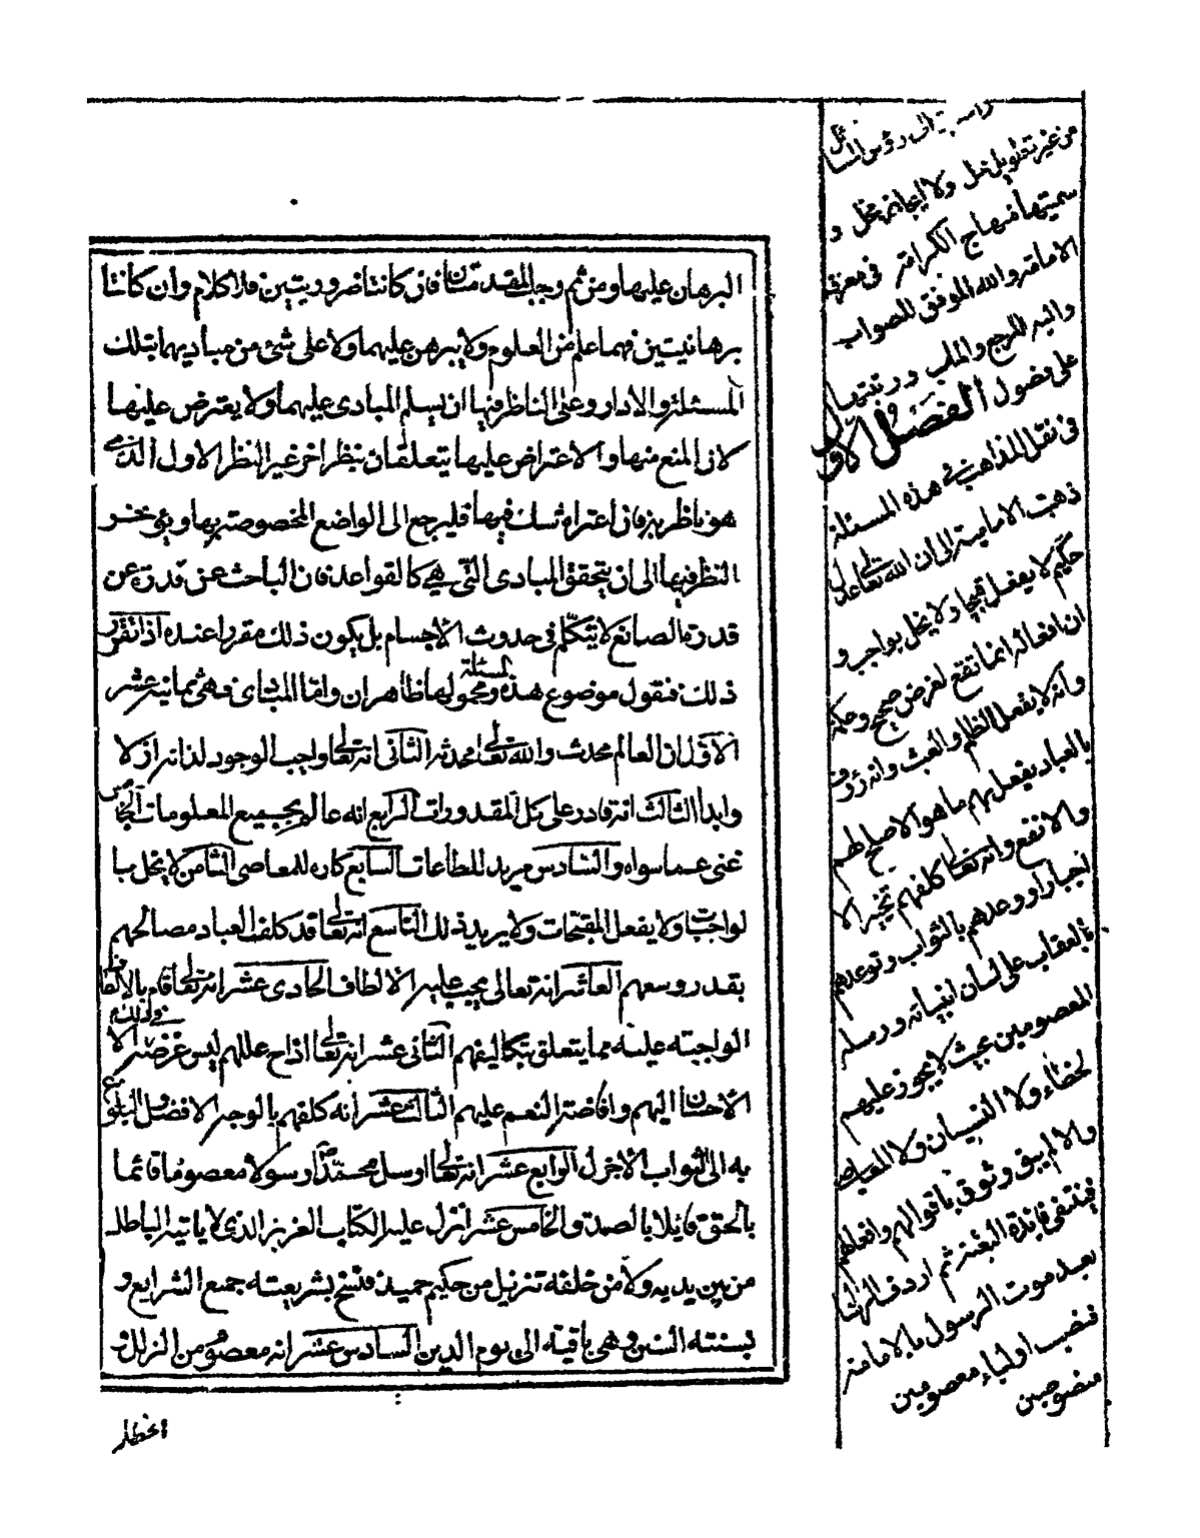 البرهان عليها ومن ثم وجب المقدمتان فان كانتا ضروريتين فلا كلام وان كانتا
برهانيتين فهما علم من العلوم ولا يبرهن عليهما ولا على شئ من مباديهما بتلك
المسئلة والا دار وعلى الناظر فيها ان يسلم المبادى عليهما ولا يعترض عليها
لان المنع منها والاعتراض عليها يتعلقان بنظر اخر غير النظر الاول الذى
هو ناظر به فان اعتراه شك فيها فليرجع الى الواضع المخصوصة بها ويؤخر
النظر فيها الى ان يتحقق المبادى التى هى كالقواعد فان الباحث عن قدرة عن
قدرة الصانع لا يتكلم فى حدوث الاجسام بل يكون ذلك مقررا عنده اذا تقرر
ذلك فنقول موضوع هذه المسئلة ومحمولها ظاهران واما المبادى فهى ثمانية عشر
الاول ان العالم محدث والله تعالى محدثه الثانى انه تعالى واجب الوجود لذاته ازلا
وابدا الثالث انه قادر على كل المقدورات الرابع انه عالم بجميع المعلومات الخامس
غنى عما سواه والسادس مريد للطاعات السابع كاره للمعاصى الثامن لا يخل با
لواجبات ولا يفعل المقبحات ولا يريد ذلك التاسع انه تعالى قد كلف العباد مصالحهم
بقدر وسعهم العاشر انه تعالى يجب عليه الالطاف الحادى عشر انه تعالى قام بالالطاف
الواجبته عليه مما يتعلق بتكاليفهم الثانى عشر انه تعالى ازاح عللهم ليس غرضه فى ذلك الا
الاحسان اليهم وافاضة النعم عليهم الثالث عشر انه كلفهم بالوجه الافضل والبلوغ
به الى الثواب الاجزل الرابع عشر انه تعالى ارسل محمدا رسولا معصوما قائما
بالحق قايلا بالصدق والخامس عشر انزل عليه الكتاب العزيز الذى لا ياتيه الباطل
من بين يديه ولا من خلفه تنزيل من حكيم حميد فنسخ بشريعته جميع الشرايع و
بسنته السنن وهى باقية الى يوم الدين السادس عشر انه معصوم من الزلل و
الخطاء
رؤس المسائل
من غير تطويل ممل ولا ايجاز مخل و
سميتها منهاج الكرامة فى معرفة
الامامة والله الموفق للصواب
واليه المرجع والمآب ورتبتها
على فصول الفصل الاول
فى نقل المذاهب فى هذه المسئلة
ذهبت الامامية الى ان الله تعالى عدل
حكيم لا يفعل قبيحا ولا يخل بواجب و
ان افعاله انما تقع لغرض صحيح وحكمة
وانه لا يفعل الظلم والعبث وانه رؤف
بالعباد يفعل بهم ما هو الاصلح لهم
والانفع وانه تعالى كلفهم تخييرا لا
اجبارا ووعدهم بالثواب وتوعدهم
بالعقاب على لسان انبيائه ورسله
المعصومين بحيث لا يجوز عليهم
الخطاء ولا النسيان ولا المعاصى
والا لم يبق وثوق باقوالهم وافعالهم
فينتفى فائدة البعثة ثم اردف الرسالة
بعد موت الرسول بالامامة
فنصب اولياء معصومين
منصوصين